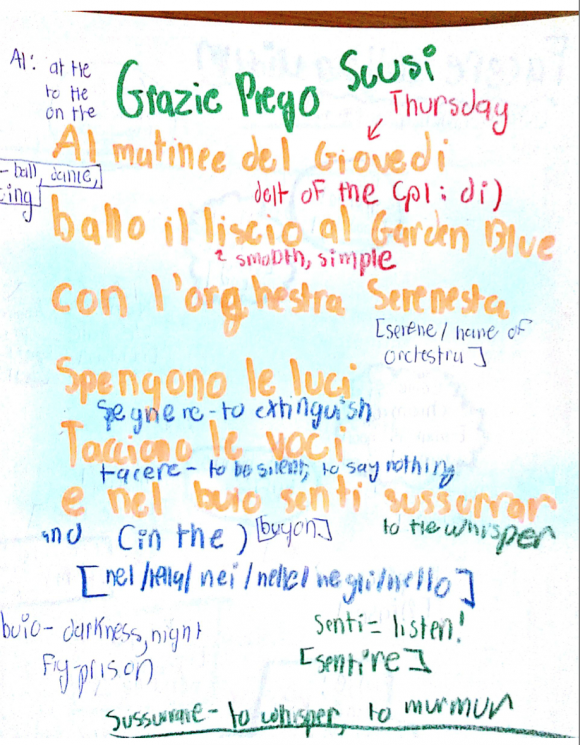 Al: at the
to the
on the
Grazie Prego Scusi
Thursday
Al matinee del Giovedi
- ball, dance,
ing
of the (pl: di)
ballo il liscio al Garden Blue
smooth, simple
con l'orghestra Serenesta
[serene / name of
orchestra]
Spengono le luci
Spegnere - to extinguish
Tacciono le voci
tacere - to be silent, to say nothing
e nel buio senti sussurrar
and (in the) [buyon] to the whisper
[nel / nella / nei / nelle / negli / nello]
buio - darkness, night
fig prison
senti = listen!
[senti're]
sussurrare - to whisper, to murmur